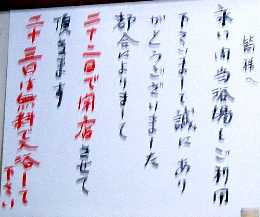 皆様へ
永い間当浴場をご利用
下さいまして誠にあり
がとうございました
都合によりまして
二十二日で閉店させて
頂きます
二十三日は無料で入浴して
下さい